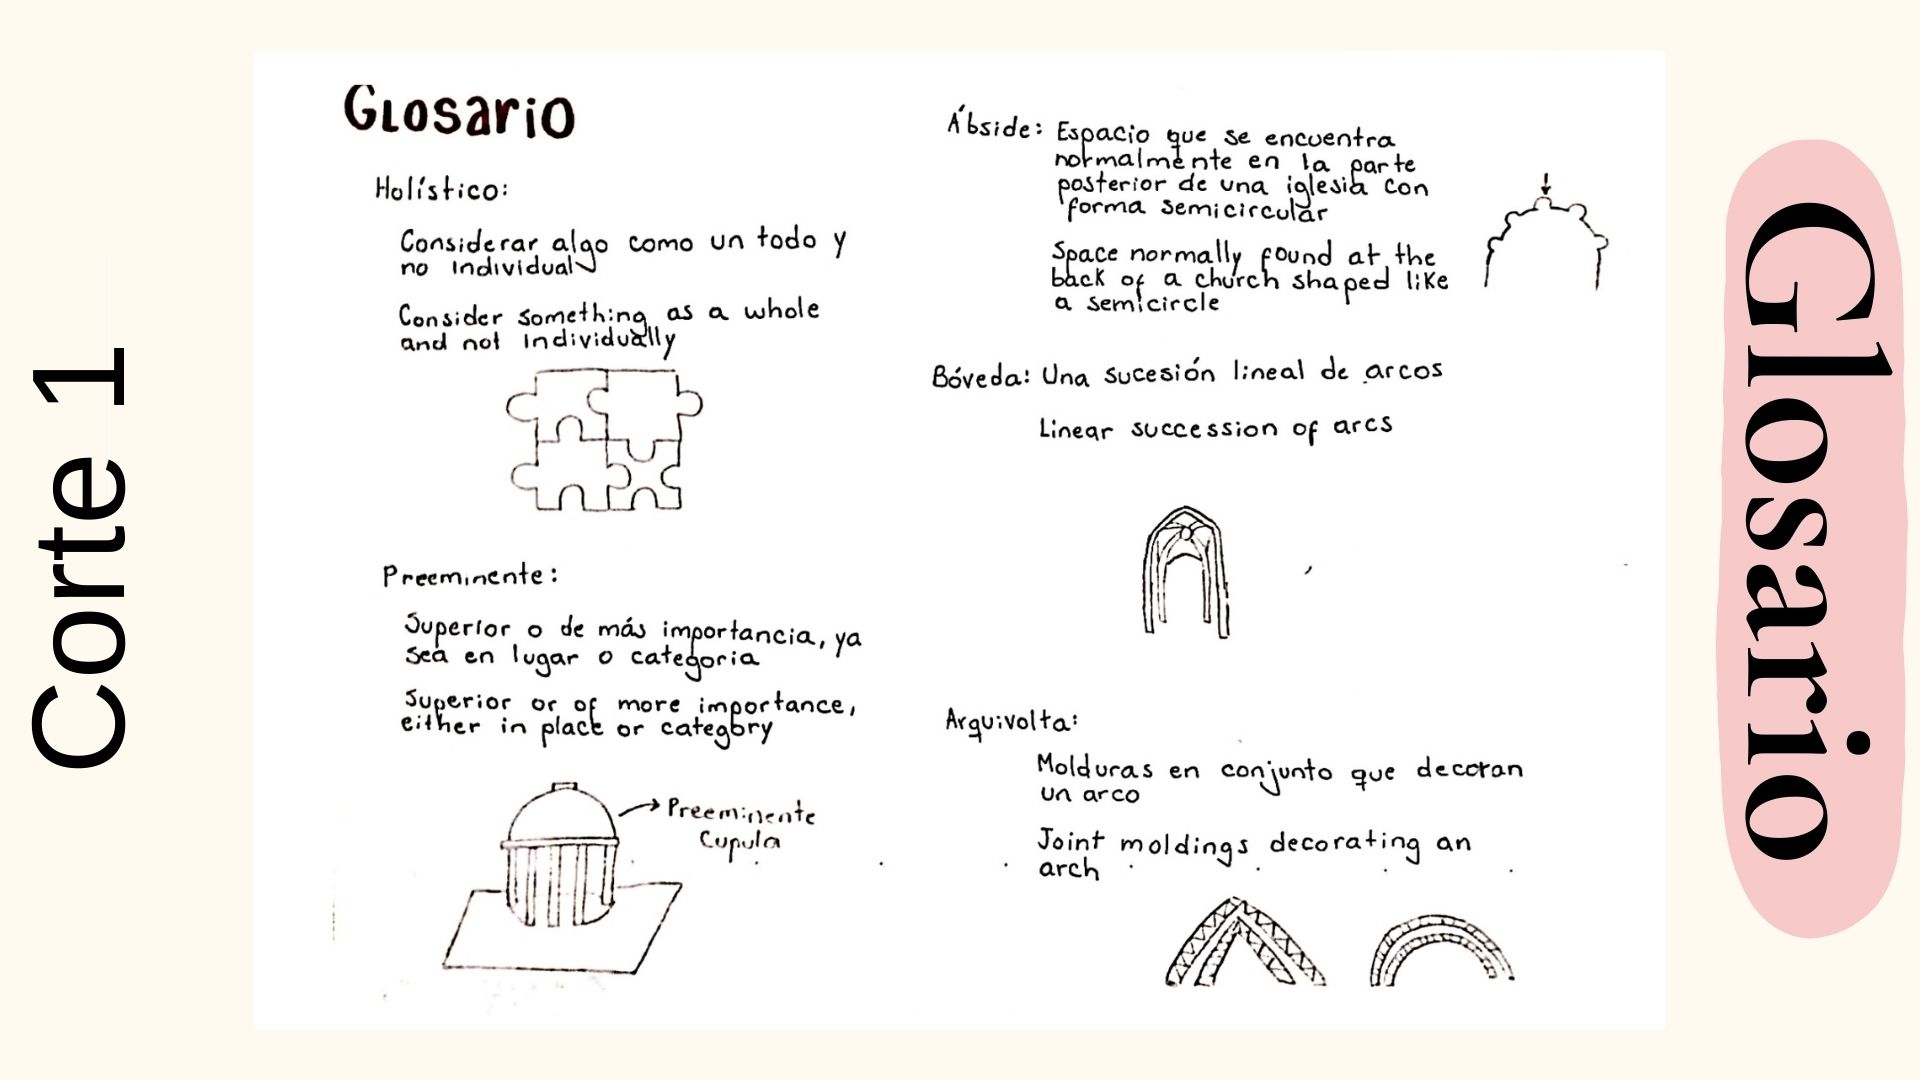 Corte 1
Glosario
Holístico:
Considerar algo como un todo y
no individual
Consider something as a whole
and not individually
Preeminente:
Superior o de más importancia, ya
sea en lugar o categoria
Superior or of more importance,
either in place or category
Preeminente
Cupula
Ábside: Espacio que se encuentra
normalmente en la parte
posterior de una iglesia con
forma semicircular
Space normally found at the
back of a church shaped like
a semicircle
Bóveda: Una sucesión lineal de arcos
Linear succession of arcs
Arquivolta:
Molduras en conjunto que decoran
un arco
Joint moldings decorating an
arch
Glosario